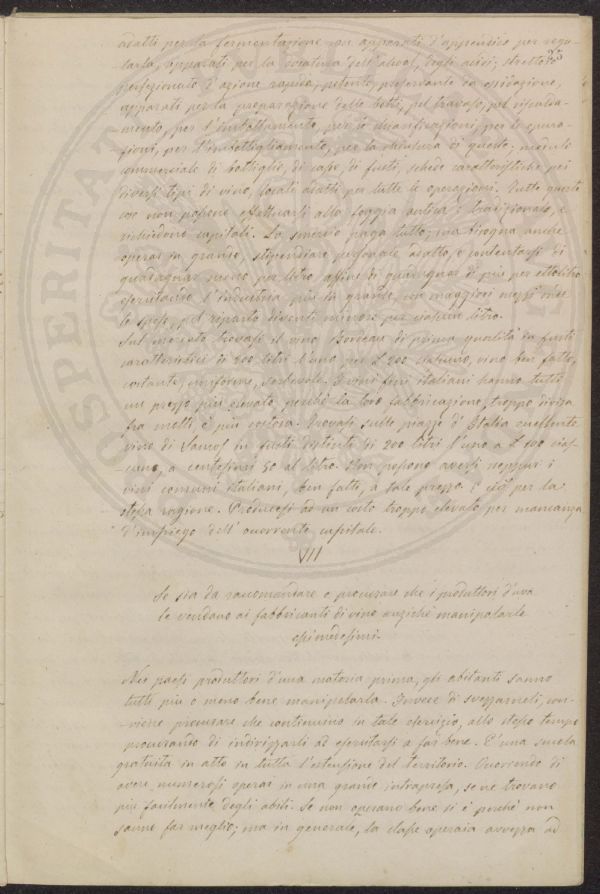 adatti per la fermentazione con apparati d'appendice per rego-
larla, apparati per la dosatura dell'alcool, degli acidi; strettojo
perfezionato d'azione rapida, potente, preservante da ossidazione,
apparati per la preparazione delle botti, pel travaso, pel riscalda-
mento, per l'imbottamento, per le chiarificazioni, per le epura-
zioni, per l'imbottigliamento, per la chiusura di queste;
commerciale di bottiglie, di casse, di fusti, schede caratteristiche pei
diversi tipi di vino, locali adatti per tutte le operazioni. Tutte queste
cose non possono effettuarsi alla foggia antica, tradizionale, e
richiedono capitali. Lo smercio paga tutto; ma bisogna anche
operar in grande, stipendiare personale adatto, e contentarsi di
guadagnar meno per litro affine di guadagnar di più per ettolitro
esercitando l'industria più in grande, con maggiori mezzi onde
le spese, pel riparto diventi minore per ciascun litro.
Sul mercato trovasi il vino Bordeau di prima qualità in fusti
caratteristici di 200 litri l'uno per £ 200 ciascuno, vino ben fatto,
costante, uniforme, serbevole. I vini fini italiani hanno tutti
un prezzo più elevato perchè la loro fabbricazione, troppo divisa
fra molti è più costosa. Trovasi sulle piazze d'Italia eccellente
vino di Samos in fusti distinti di 200 litri l'uno a £ 100 cias-
-cuno, a centesimi 50 al litro. Non possono aversi neppure i
vini comuni italiani, ben fatti, a tale prezzo. E ciò per la
stessa ragione. Produconsi ad un costo troppo elevato per mancanza
d'impiego dell'occorrente capitale.
VII
Se sia da raccomandare e procurare che i produttori d'uva
le vendano ai fabbricanti di vino anzichè manipolarle
essi medesimi.
Nei paesi produttori d'una materia prima, gli abitanti sanno
tutti più o meno bene manipolarla. Invece di svezzarneli, con-
-viene procurare che continuino in tale esercizio, allo stesso tempo
procurando di indirizzarli ad esercitarsi a far bene. È una scuola
gratuita in atto in tutta l'estensione del territorio. Occorrendo di
avere numerosi operai in una grande intrapresa, se ne trovano
più facilmente degli abili. Se non operano bene si è perchè non
sanno far meglio; ma in generale, la classe operaia avvezza ad
PROSPERITATI